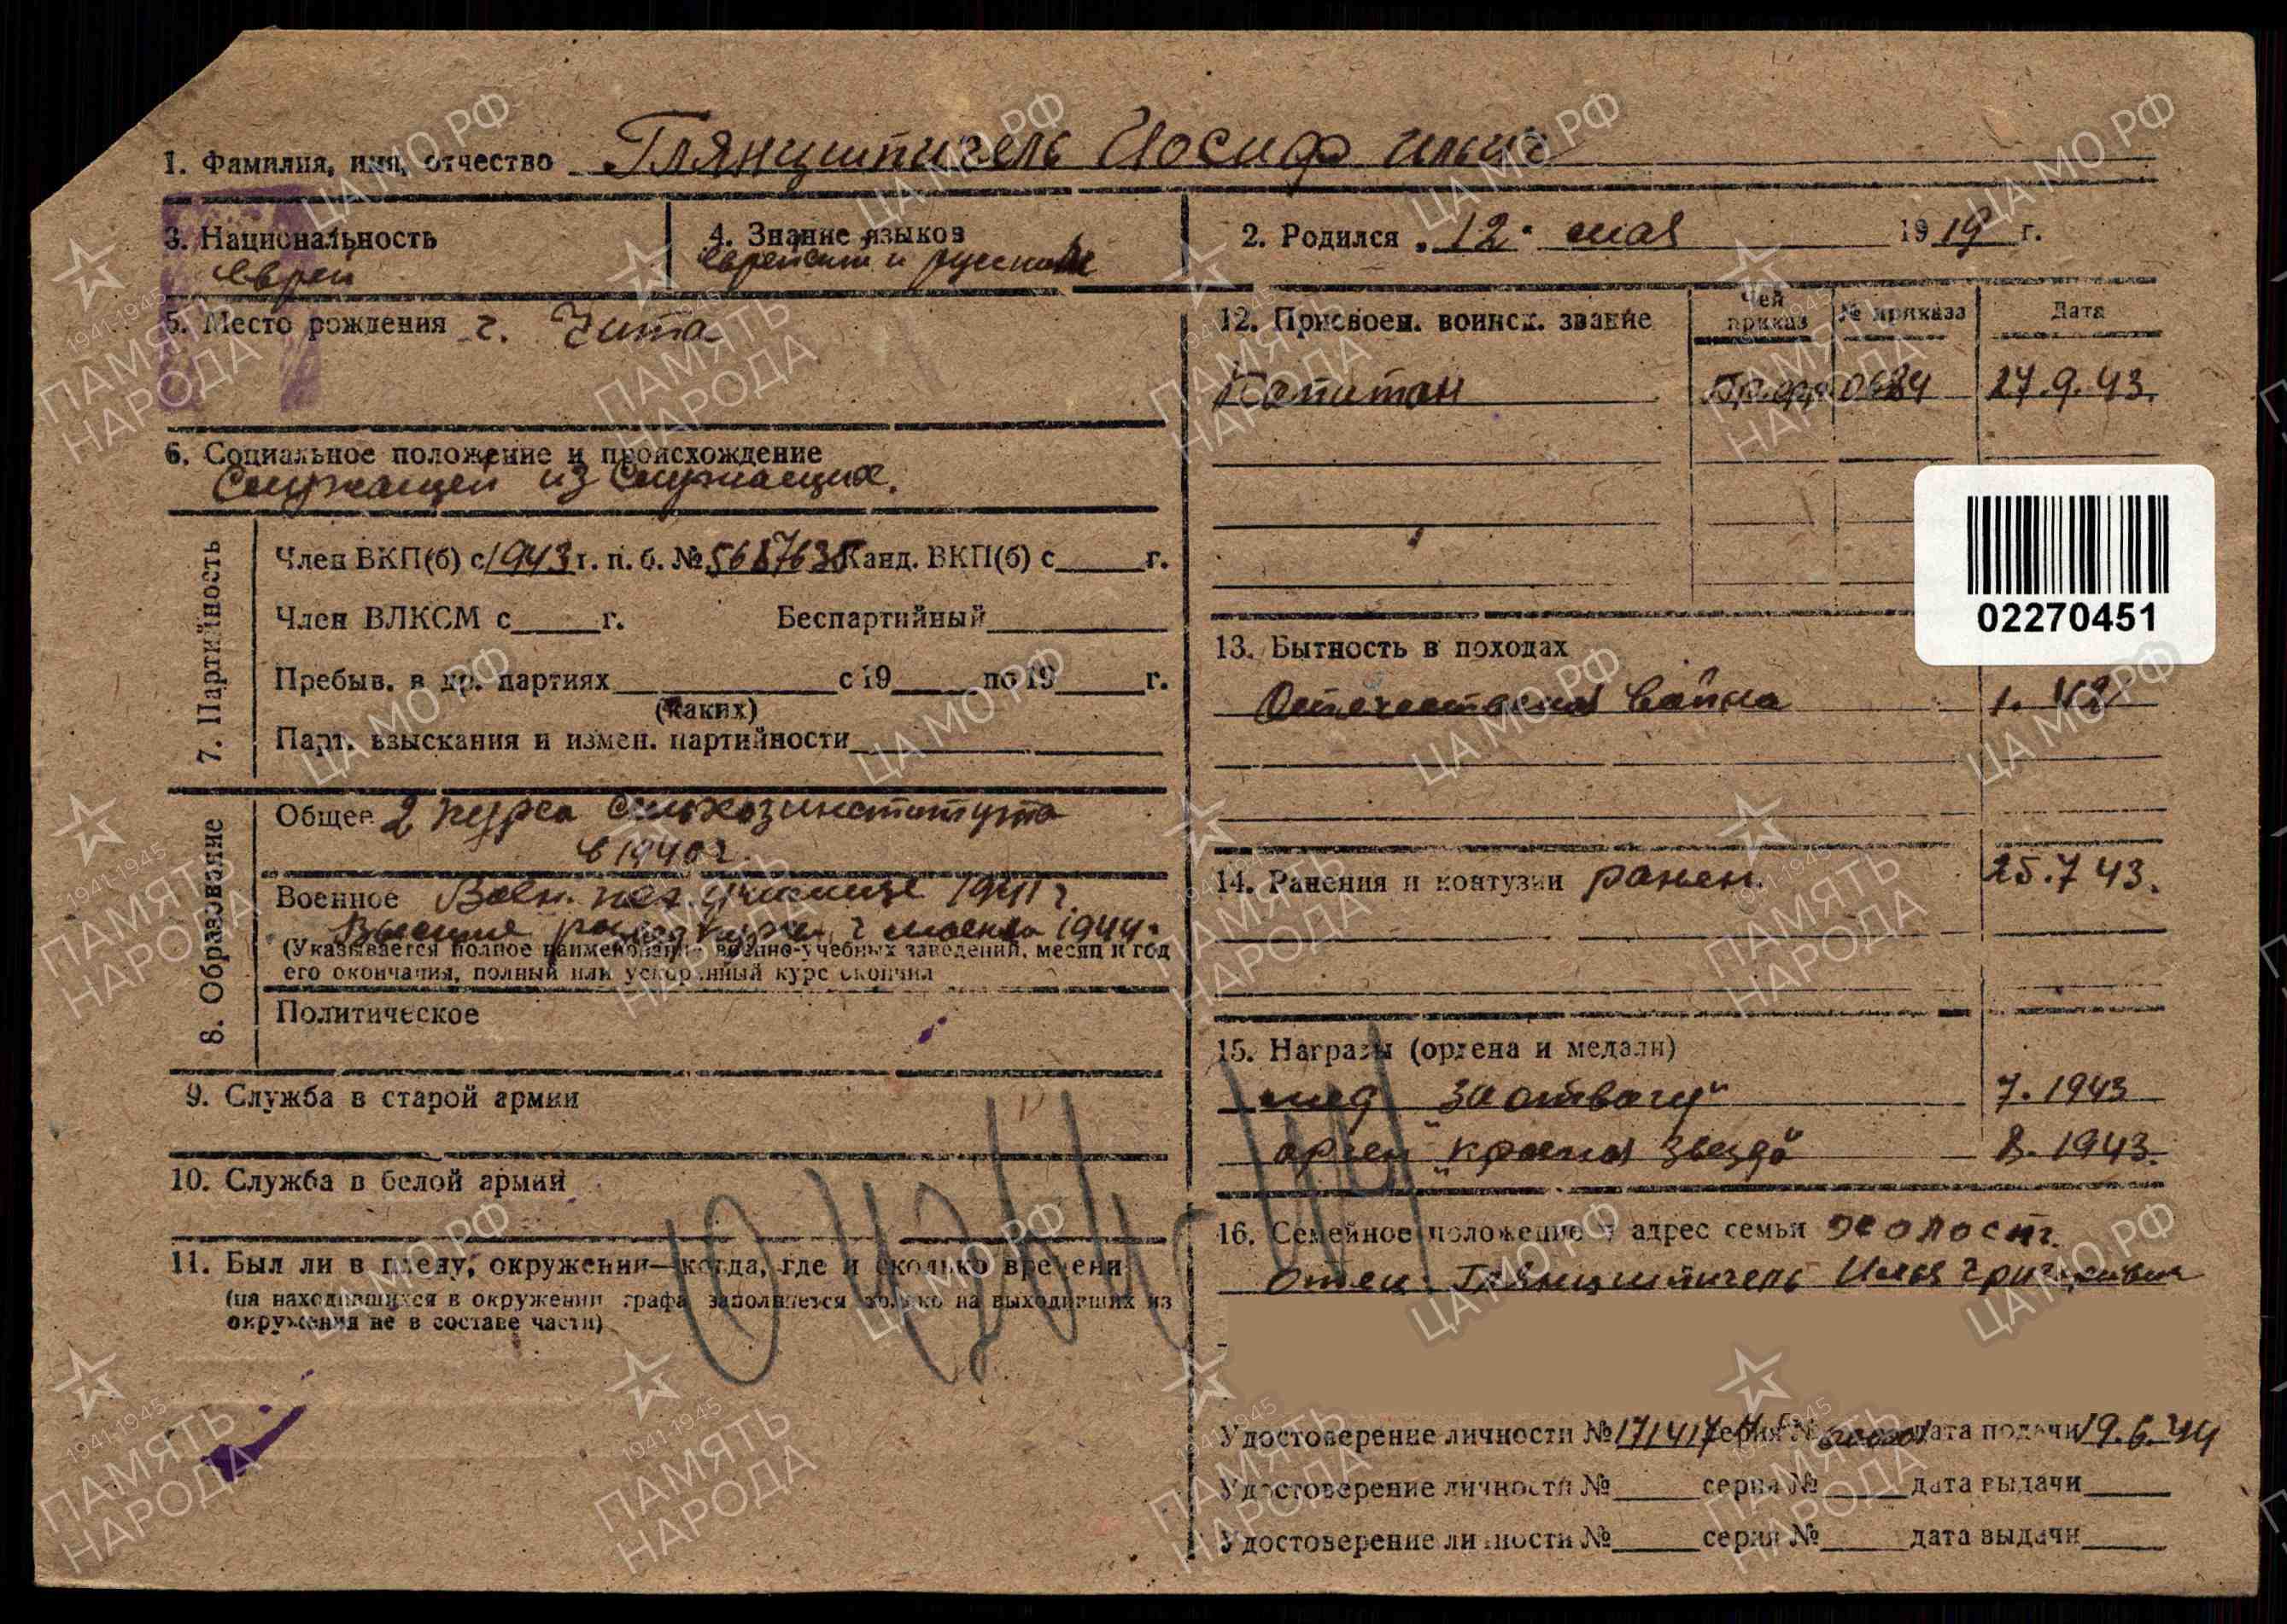 1. Фамилия, имя, отчество Глянцшпигель Иосиф Ильич
3. Национальность
еврей
4. Знание языков
еврейский и русский
2. Родился "12" мая 1919 г.
5. Место рождения г. Чита
12. Присвоен. воинск. звание
Чей приказ
№ приказа
Дата
Капитан
0684
27.9.43.
6. Социальное положение и происхождение
Служащей из служащих.
02270451
7. Партийность
Член ВКП(б) с 1943 г. п. б. № 5687635 Канд. ВКП(б) с г.
Член ВЛКСМ с г. Беспартийный
Пребыв. в др. партиях с 19 по 19 г.
(каких)
Парт. взыскания и измен. партийности
13. Бытность в походах
Отечественная война
8. Образование
Общее 2 курса сельхозинститута
в 1940 г.
Военное Воен. пех. училище 1941 г.
Высшие курсы г. Москва 1944.
(Указывается полное наименование военно-учебных заведений, месяц и год
его окончания, полный или ускоренный курс окончил
Политическое
14. Ранения и контузии ранен. 25.7 43.
9. Служба в старой армии
10. Служба в белой армии
11. Был ли в плену, окружении—когда, где и сколько времени
(на находившихся в окружении графа заполняется только на выходивших из
окружения не в составе части)
15. Награды (ордена и медали)
мед "За отвагу" 7. 1943
орден "Красная звезда" 8. 1943.
16. Семейное положение и адрес семьи холост.
отец: Глянцшпигель Илья Григорьевич
Удостоверение личности № 171417 серия № дата подачи 19.6.44
Удостоверение личности № серия № дата выдачи
Удостоверение личности № серия № дата выдачи
ПАМЯТЬ НАРОДА
1941-1945
ЦА МО РФ